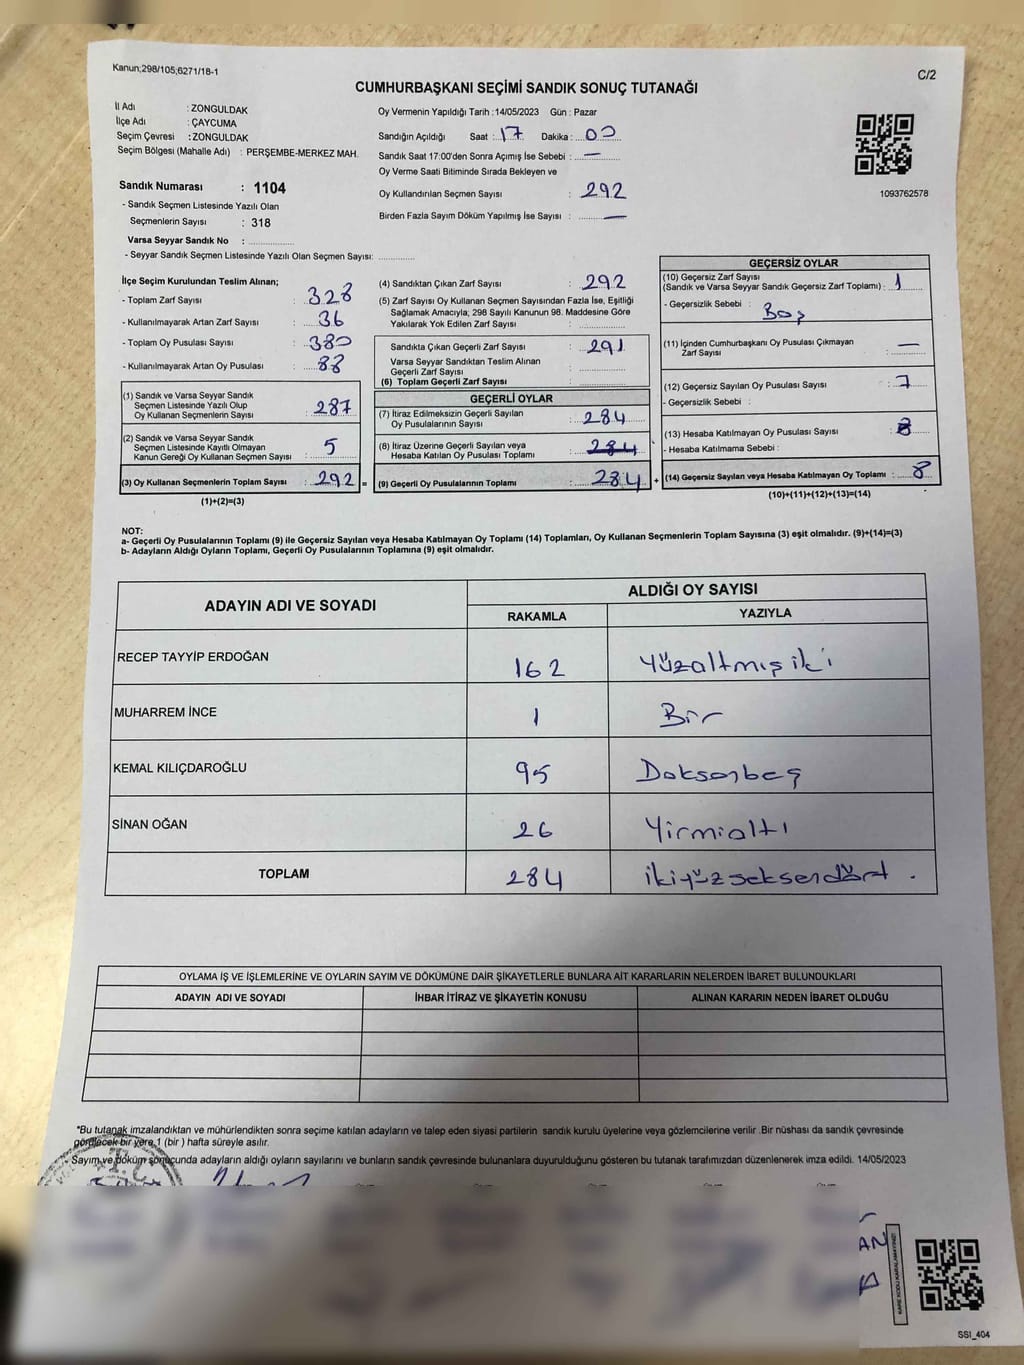 Kanun;298/105;6271/18-1
C/2
CUMHURBAŞKANI SEÇİMİ SANDIK SONUÇ TUTANAĞI
İl Adı : ZONGULDAK
İlçe Adı : ÇAYCUMA
Seçim Çevresi : ZONGULDAK
Seçim Bölgesi (Mahalle Adı) : PERŞEMBE-MERKEZ MAH.
Sandık Numarası : 1104
- Sandık Seçmen Listesinde Yazılı Olan
Seçmenlerin Sayısı : 318
Varsa Seyyar Sandık No : ..............
- Seyyar Sandık Seçmen Listesinde Yazılı Olan Seçmen Sayısı: ............
Oy Vermenin Yapıldığı Tarih :14/05/2023 Gün : Pazar
Sandığın Açıldığı Saat : 17 Dakika : 00
Sandık Saat 17:00'den Sonra Açımış İse Sebebi : —
Oy Verme Saati Bitiminde Sırada Bekleyen ve
Oy Kullandırılan Seçmen Sayısı : 292
Birden Fazla Sayım Döküm Yapılmış İse Sayısı : —
1093762578
İlçe Seçim Kurulundan Teslim Alınan;
- Toplam Zarf Sayısı : 328
- Kullanılmayarak Artan Zarf Sayısı : 36
- Toplam Oy Pusulası Sayısı : 380
- Kullanılmayarak Artan Oy Pusulası : 88
(1) Sandık ve Varsa Seyyar Sandık
Seçmen Listesinde Yazılı Olup
Oy Kullanan Seçmenlerin Sayısı : 287
(2) Sandık ve Varsa Seyyar Sandık
Seçmen Listesinde Kayıtlı Olmayan
Kanun Gereği Oy Kullanan Seçmen Sayısı : 5
(3) Oy Kullanan Seçmenlerin Toplam Sayısı : 292 =
(1)+(2)=(3)
(4) Sandıktan Çıkan Zarf Sayısı : 292
(5) Zarf Sayısı Oy Kullanan Seçmen Sayısından Fazla İse, Eşitliği
Sağlamak Amacıyla; 298 Sayılı Kanunun 98. Maddesine Göre
Yakılarak Yok Edilen Zarf Sayısı : ..............
Sandıkta Çıkan Geçerli Zarf Sayısı : 291
Varsa Seyyar Sandıktan Teslim Alınan
Geçerli Zarf Sayısı : ..............
(6) Toplam Geçerli Zarf Sayısı : ..............
GEÇERLİ OYLAR
(7) İtiraz Edilmeksizin Geçerli Sayılan
Oy Pusulalarının Sayısı : 284
(8) İtiraz Üzerine Geçerli Sayılan veya
Hesaba Katılan Oy Pusulası Toplamı : 284
(9) Geçerli Oy Pusulalarının Toplamı : 284 +
GEÇERSİZ OYLAR
(10) Geçersiz Zarf Sayısı
(Sandık ve Varsa Seyyar Sandık Geçersiz Zarf Toplamı) : 1
- Geçersizlik Sebebi : Boş
(11) İçinden Cumhurbaşkanı Oy Pusulası Çıkmayan
Zarf Sayısı : —
(12) Geçersiz Sayılan Oy Pusulası Sayısı : 7
- Geçersizlik Sebebi :
(13) Hesaba Katılmayan Oy Pusulası Sayısı :
- Hesaba Katılmama Sebebi :
(14) Geçersiz Sayılan veya Hesaba Katılmayan Oy Toplamı : 8
(10)+(11)+(12)+(13)=(14)
NOT:
a- Geçerli Oy Pusulalarının Toplamı (9) ile Geçersiz Sayılan veya Hesaba Katılmayan Oy Toplamı (14) Toplamları, Oy Kullanan Seçmenlerin Toplam Sayısına (3) eşit olmalıdır. (9)+(14)=(3)
b- Adayların Aldığı Oyların Toplamı, Geçerli Oy Pusulalarının Toplamına (9) eşit olmalıdır.
ADAYIN ADI VE SOYADI ALDIĞI OY SAYISI
RAKAMLA YAZIYLA
RECEP TAYYİP ERDOĞAN 162 Yüzaltmışiki
MUHARREM İNCE 1 Bir
KEMAL KILIÇDAROĞLU 95 Doksanbeş
SİNAN OĞAN 26 Yirmialtı
TOPLAM 284 ikiyüzseksendört .
OYLAMA İŞ VE İŞLEMLERİNE VE OYLARIN SAYIM VE DÖKÜMÜNE DAİR ŞİKAYETLERLE BUNLARA AİT KARARLARIN NELERDEN İBARET BULUNDUKLARI
ADAYIN ADI VE SOYADI İHBAR İTİRAZ VE ŞİKAYETİN KONUSU ALINAN KARARIN NEDEN İBARET OLDUĞU
*Bu tutanak imzalandıktan ve mühürlendikten sonra seçime katılan adayların ve talep eden siyasi partilerin sandık kurulu üyelerine veya gözlemcilerine verilir .Bir nüshası da sandık çevresinde
görülecek bir yere 1 (bir ) hafta süreyle asılır.
* Sayım ve döküm sonucunda adayların aldığı oyların sayılarını ve bunların sandık çevresinde bulunanlara duyurulduğunu gösteren bu tutanak tarafımızdan düzenlenerek imza edildi. 14/05/2023
T.C
AN
KARE KODU KARALAMAYINIZ!
SSI_404